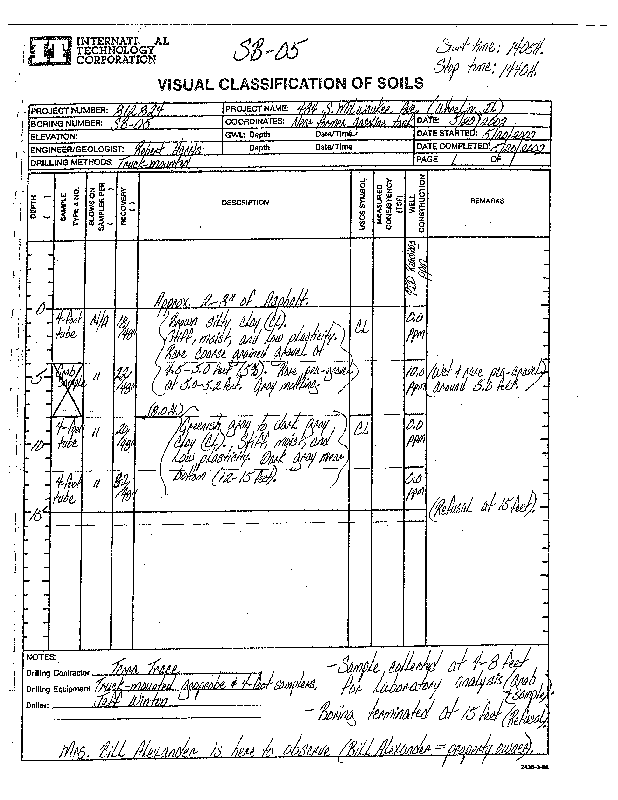 INTERNATI AL
TECHNOLOGY
CORPORATION
SB-05
Start time: 1405H.
Stop time: 1440H.
VISUAL CLASSIFICATION OF SOILS
PROJECT NUMBER: 812824
PROJECT NAME: 484 S. Milwaukee Ave. (Wheeling, IL)
BORING NUMBER: SB-05
COORDINATES: Near former gasoline tank
DATE: 5/20/2002
ELEVATION:
GWL: Depth Date/Time
DATE STARTED: 5/20/2002
ENGINEER/GEOLOGIST: Robert
Depth Date/Time
DATE COMPLETED: 5/20/2002
DRILLING METHODS: Truck-mounted
PAGE 1 OF 1
DEPTH
SAMPLE TYPE & NO.
BLOWS ON SAMPLER PER ( )
RECOVERY ( )
DESCRIPTION
USCS SYMBOL
MEASURED CONSISTENCY (TSF)
WELL CONSTRUCTION
REMARKS
PID Readings
0
Approx. 2-3" of Asphalt.
4-foot tube
N/A
18/48"
Brown silty clay (CL).
Stiff, moist, and low plasticity.
Rare coarse grained gravel at
4.5-5.0 feet (5%). Rare pea-gravel
at 5.0-5.2 feet. Gray mottling.
CL
0.0 ppm
5
Grab/Sample
"
22/48"
10.0 ppm
(Wet & rare pea-gravel)
around 5.0 feet.
(8.0 ft)
4-foot tube
"
/48"
Greenish gray to dark gray
clay (CL). Stiff, moist, and
low plasticity. Dark gray near
bottom (12-15 feet).
CL
0.0 ppm
10
4-foot tube
"
32/48"
0.0 ppm
15
(Refusal at 15 feet).
NOTES:
Drilling Contractor Terra Trace
Drilling Equipment Truck-mounted geoprobe & 4-foot samplers.
Driller: Jeff Winton
- Sample collected at 4-8 feet
for laboratory analysis (Grab
Sample).
- Boring terminated at 15 feet (Refusal)
Mrs. Bill Alexander is here to observe (Bill Alexander = property owner).